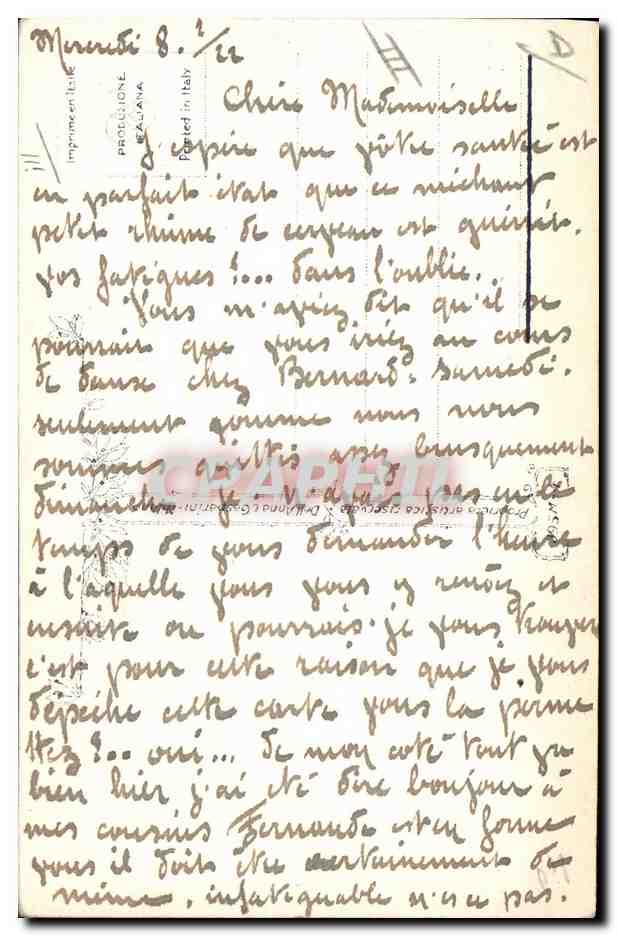 Mercredi 8. 2/22
III
Imprimé en Italie
PRODUZIONE
ITALIANA
Printed in Italy
Chère Mademoiselle
J'espère que vôtre santé est
en parfait état que ce méchant
petit rhume de cerveau est guérit.
vos fatigues !... dans l'oublie.
Vous m'aviez dit qu'il se
pourrait que vous iriez au cours
de danse chez Bernard - Samedi.
seulement comme nous nous
sommes quittés assez brusquement
dimanche je n'ai pas eu le
temps de vous demander l'heure
à l'aquelle vous vous y rendez et
ensuite ou pourrais-je vous trouver
c'est pour cette raison que je vous
dépêche cette carte vous la perme
ttez ?.. oui... de mon coté tout va
bien hier j'ai été dire bonjour à
mes cousins Fernande est en forme
vous il doit être certainement de
même, infatiguable n'es ce pas.
Proprietà artistica riservata - Dell'Anna & Gasparini - Milano
CPAPHIL